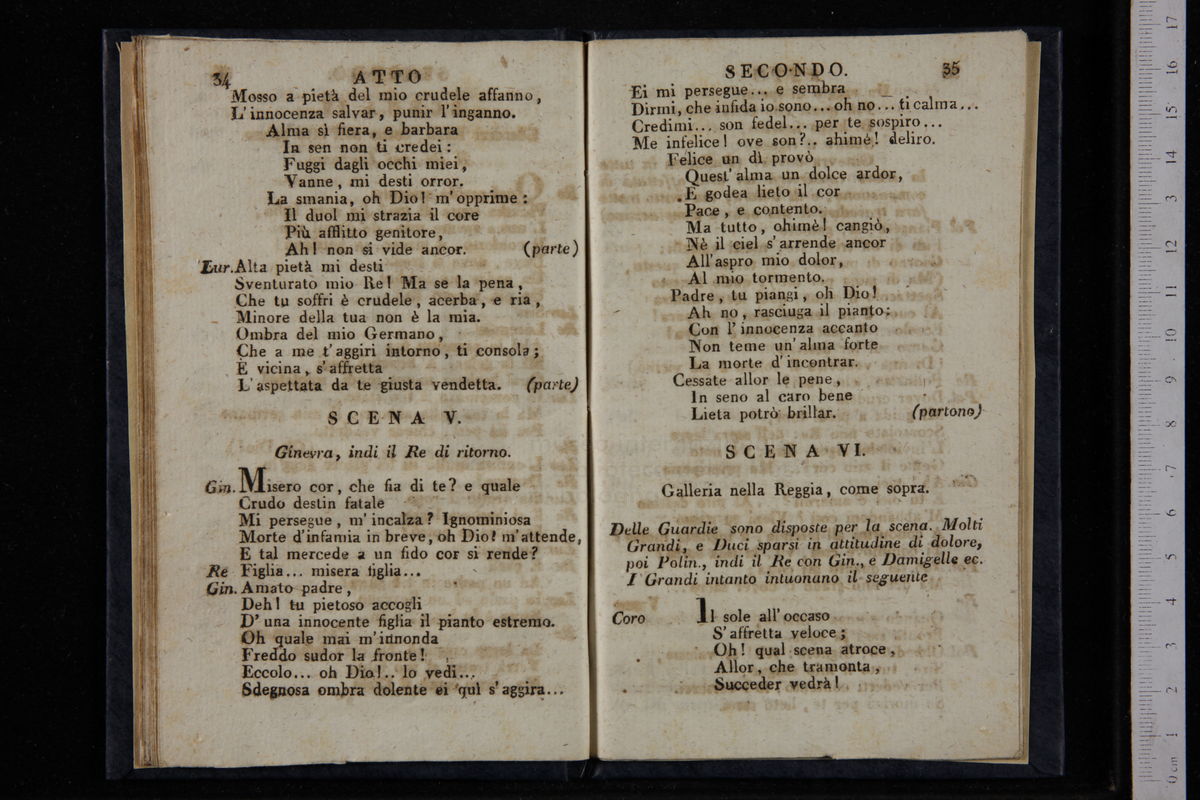 34 ATTO
Mosso a pietà del mio crudele affanno,
L'innocenza salvar, punir l'inganno.
Alma sì fiera, e barbara
In sen non ti credei:
Fuggi dagli occhi miei,
Vanne, mi desti orror.
La smania, oh Dio! m'opprime:
Il duol mi strazia il core
Più afflitto genitore,
Ah! non si vide ancor. (parte)
Lur. Alta pietà mi desti
Sventurato mio Re! Ma se la pena,
Che tu soffri è crudele, acerba, e ria,
Minore della tua non è la mia.
Ombra del mio Germano,
Che a me t'aggiri intorno, ti consola;
E vicina, s'affretta
L'aspettata da te giusta vendetta. (parte)
SCENA V.
Ginevra, indi il Re di ritorno.
Gin. Misero cor, che fia di te? e quale
Crudo destin fatale
Mi persegue, m'incalza? Ignominiosa
Morte d'infamia in breve, oh Dio! m'attende,
E tal mercede a un fido cor si rende?
Re Figlia... misera figlia...
Gin. Amato padre,
Deh! tu pietoso accogli
D'una innocente figlia il pianto estremo.
Oh quale mai m'innonda
Freddo sudor la fronte!
Eccolo... oh Dio!.. lo vedi...
Sdegnosa ombra dolente ei quì s'aggira...
SECONDO. 35
Ei mi persegue... e sembra
Dirmi, che infida io sono... oh no... ti calma...
Credimi... son fedel... per te sospiro...
Me infelice! ove son?.. ahimè! deliro.
Felice un dì provò
Quest'alma un dolce ardor,
E godea lieto il cor
Pace, e contento.
Ma tutto, ohimè! cangiò,
Nè il ciel s'arrende ancor
All'aspro mio dolor,
Al mio tormento.
Padre, tu piangi, oh Dio!
Ah no, rasciuga il pianto:
Con l'innocenza accanto
Non teme un'alma forte
La morte d'incontrar.
Cessate allor le pene,
In seno al caro bene
Lieta potrò brillar. (partono)
SCENA VI.
Galleria nella Reggia, come sopra.
Delle Guardie sono disposte per la scena. Molti
Grandi, e Duci sparsi in attitudine di dolore,
poi Polin., indi il Re con Gin., e Damigelle ec.
I Grandi intanto intuonano il seguente
Coro Il sole all'occaso
S'affretta veloce;
Oh! qual scena atroce,
Allor, che tramonta,
Succeder vedrà!